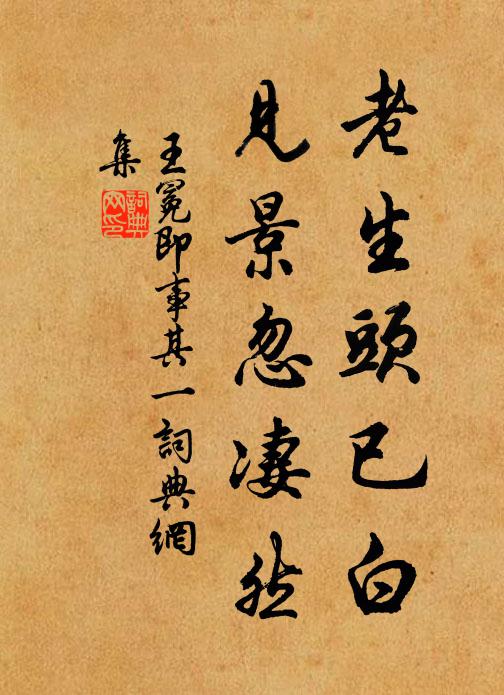 老生頭已白
見景忽凄然
王冕即事其一詞典網
集
詞典网印